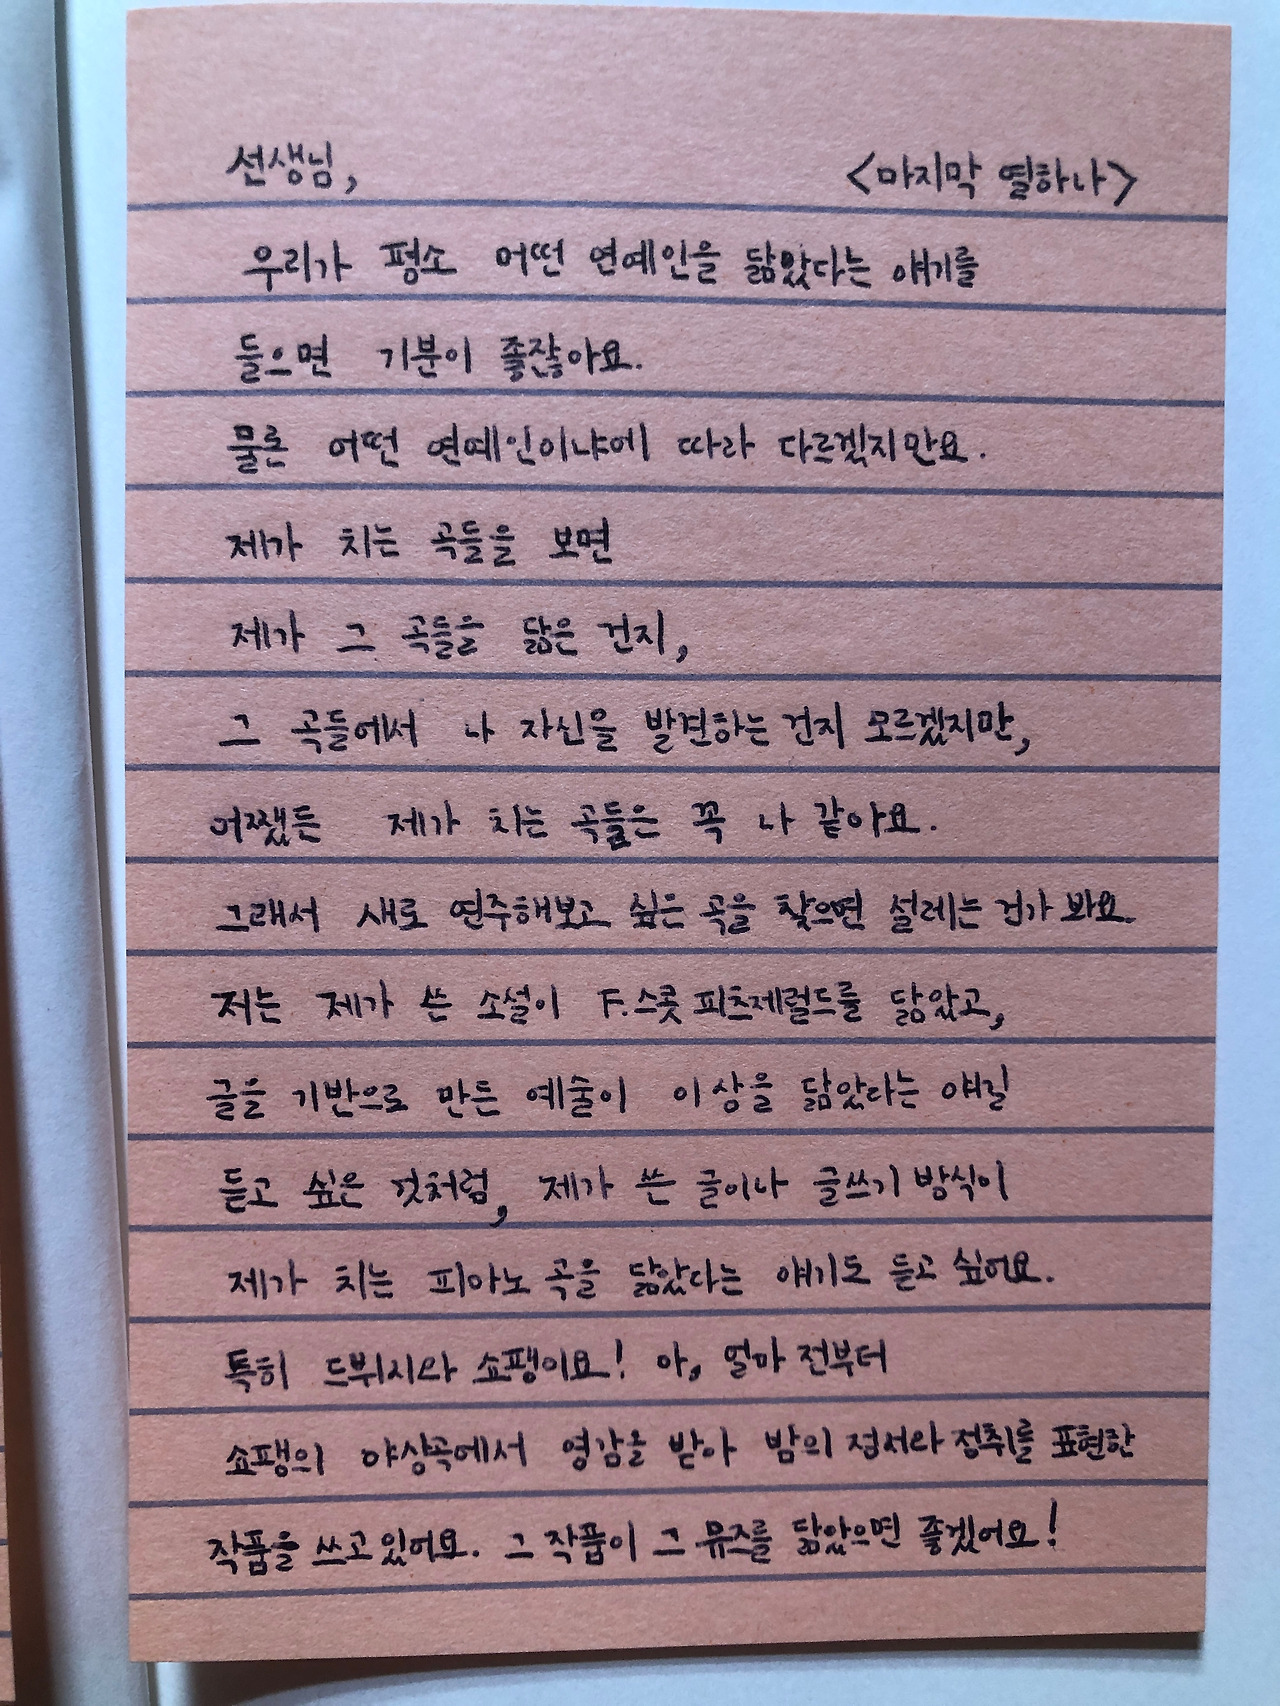 선생님, <마지막 열하나>
우리가 평소 어떤 연예인을 닮았다는 얘기를
들으면 기분이 좋잖아요.
물론 어떤 연예인이냐에 따라 다르겠지만요.
제가 치는 곡들을 보면
제가 그 곡들을 닮은 건지,
그 곡들에서 나 자신을 발견하는 건지 모르겠지만,
어쨌든 제가 치는 곡들은 꼭 나 같아요.
그래서 새로 연주해보고 싶은 곡을 찾으면 설레는 건가 봐요.
저는 제가 쓴 소설이 F.스콧 피츠제럴드를 닮았고,
글을 기반으로 만든 예술이 이상을 닮았다는 얘길
듣고 싶은 것처럼, 제가 쓴 글이나 글쓰기 방식이
제가 치는 피아노 곡을 닮았다는 얘기도 듣고 싶어요.
특히 드뷔시와 쇼팽이요! 아, 얼마 전부터
쇼팽의 야상곡에서 영감을 받아 밤의 정서와 정취를 표현한
작품을 쓰고 있어요. 그 작품이 그 뮤즈를 닮았으면 좋겠어요!